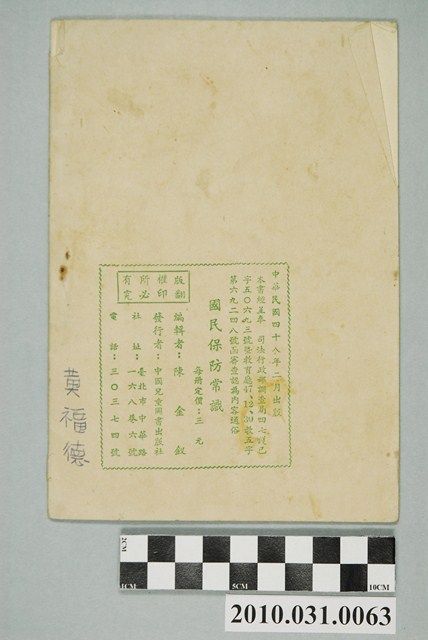 中華民國四十八年二月出版
本書經呈奉 司法行政部調查局四七護己
字五〇六九三號暨教育廳47、12、30教五字
第六九二四八號函審查認為內容通俗
國民保防常識
每冊定價:三元
編輯者:陳金釵
發行者:中國兒童圖書出版社
社址:臺北市中華路
一六八巷六號
電話:三〇三七四號
版權所有
翻印必究
黃福德
2CM
1CM
5CM
10CM
2010.031.0063